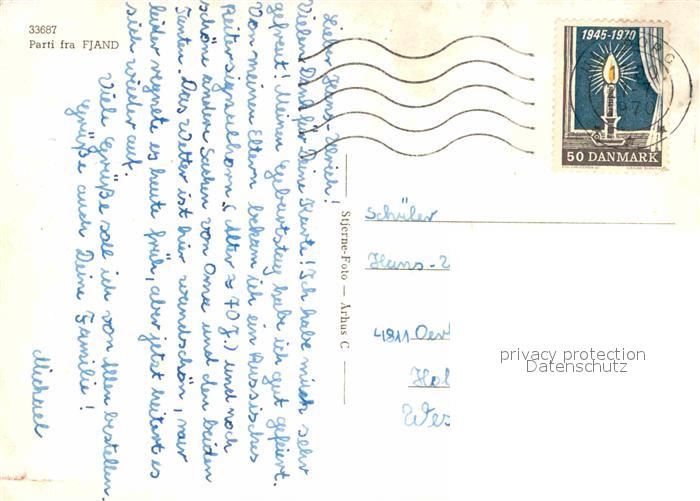 33687
Parti fra FJAND
Lieber Hans-Ulrich!
Vielen Dank für Deine Karte! Ich habe mich sehr
gefreut! Meinen Geburtstag habe ich gut gefeiert.
Von meinen Eltern bekam ich ein Russisches
Reitersignalhorn (Alter ≈ 70 J.) und noch
schöne andere Sachen von Oma und den beiden
Tanten. Das Wetter ist hier wundschön, nur
leider regnete es heute früh, aber jetzt heitert es
sich wieder auf.
Viele Grüße soll ich von Allen bestellen.
Grüße auch Deine Familie!
Michael
Stjerne-Foto — Århus C
1945-1970
50 DANMARK
1970
Schüler
Hans-
4811 Oer
Hol
Wes
privacy protection
Datenschutz